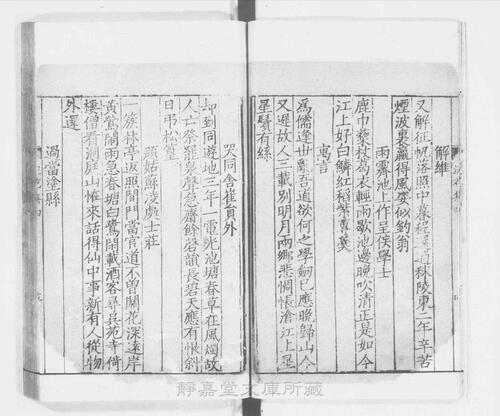 解維
又解征帆落照中暮程還過秣陵東二年辛苦
煙波裏贏得風姿似釣翁
雨霽池上作呈侯學士
鹿巾藜杖葛衣輕雨歇池邊晚吹清正是如今
江上好白鱗紅稻紫蓴羹
寓言
爲儒逢世亂吾道欲何之學劒已應晚歸山今
又遲故人三載別明月兩鄉悲惆悵滄江上星
星鬢有絲
哭同舍崔員外
却到同遊地三年一電光池塘春草在風燭故
人亡祭罷泉聲急齋餘磬韻長碧天應有恨斜
日弔松篁
題姑蘇凌處士莊
一簇林亭返照間門當官道不曾關花深遠岸
黃鶯鬧雨急春塘白鷺閑載酒客尋吳苑寺倚
樓僧看洞庭山惟來話得仙中事新有人從物
外還
過當塗縣
靜嘉堂文庫所藏